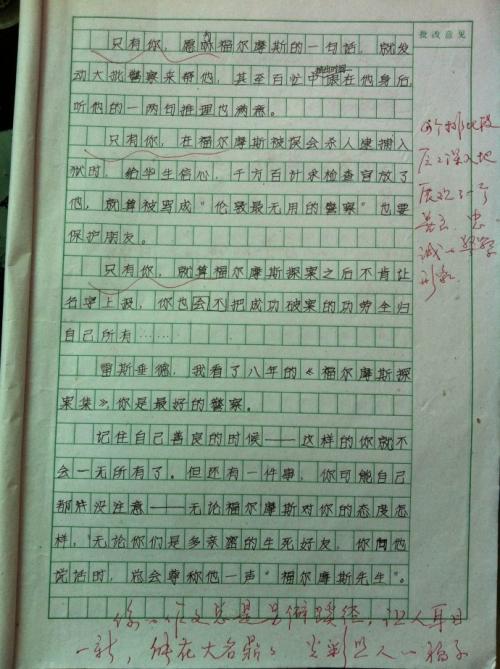 批改意见
只有你，愿为福尔摩斯的一句话，就发
动大批警察来帮他，甚至百忙中抽出时间跟在他身后，
听他的一两句推理也满意。
只有你，在福尔摩斯被误会杀人逮捕入
狱时，给华生信心，千方百计求检查官放了
他，就算被骂成“伦敦最无用的警察”也要
保护朋友。
只有你，就算福尔摩斯探案之后不肯让
名字上报，你也会不把成功破案的功劳全归
自己所有……
雷斯垂德，我看了八年的《福尔摩斯探
案集》，你是最好的警察。
记住自己善良的时候——这样的你就不
会一无所有了。但还有一件事，你可能自己
都从没注意——无论福尔摩斯对你的态度怎
样，无论你们是多亲密的生死好友，你同他
说话时，总会尊称他一声“福尔摩斯先生”。
排比段
层层深入地
展现了一个
善良、忠
诚的警察
形象
你的作文总是另辟蹊径，让人耳目
一新，